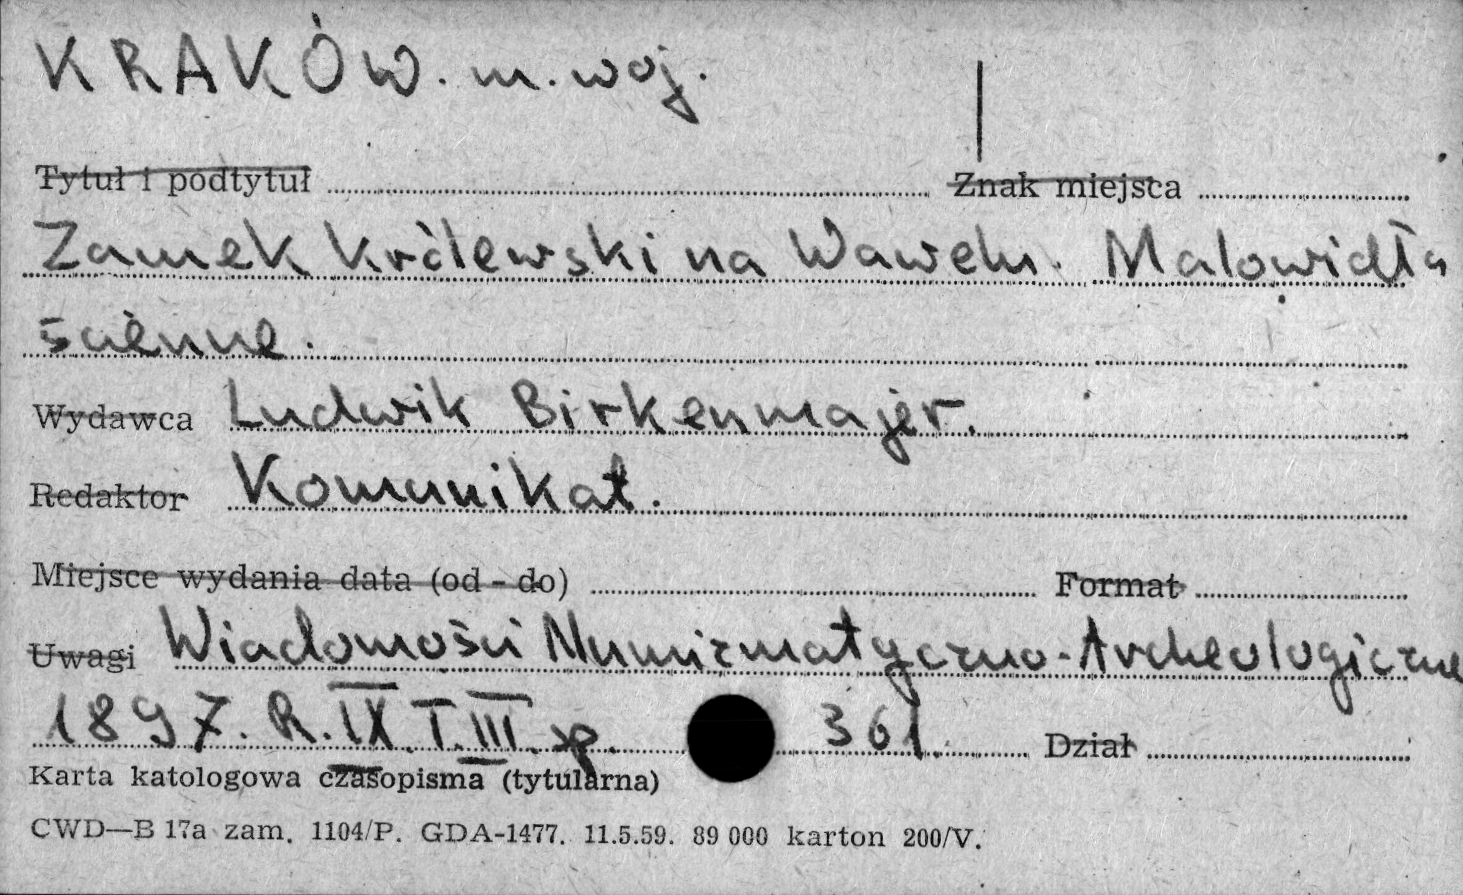 KRAKÓW. m. woj.
Tytuł i podtytuł Znak miejsca
Zamek Królewski na Wawelu. Malowidła
ścienne.
Wydawca Ludwik Birkenmajer.
Redaktor Komunikat.
Miejsce wydania data (od - do) Format
Uwagi Wiadomości Numizmatyczno-Archeologiczne
1897. R. IX. T. III. sp. 361. Dział
Karta katologowa czasopisma (tytularna)
CWD—B 17a zam. 1104/P. GDA-1477. 11.5.59. 89 000 karton 200/V.